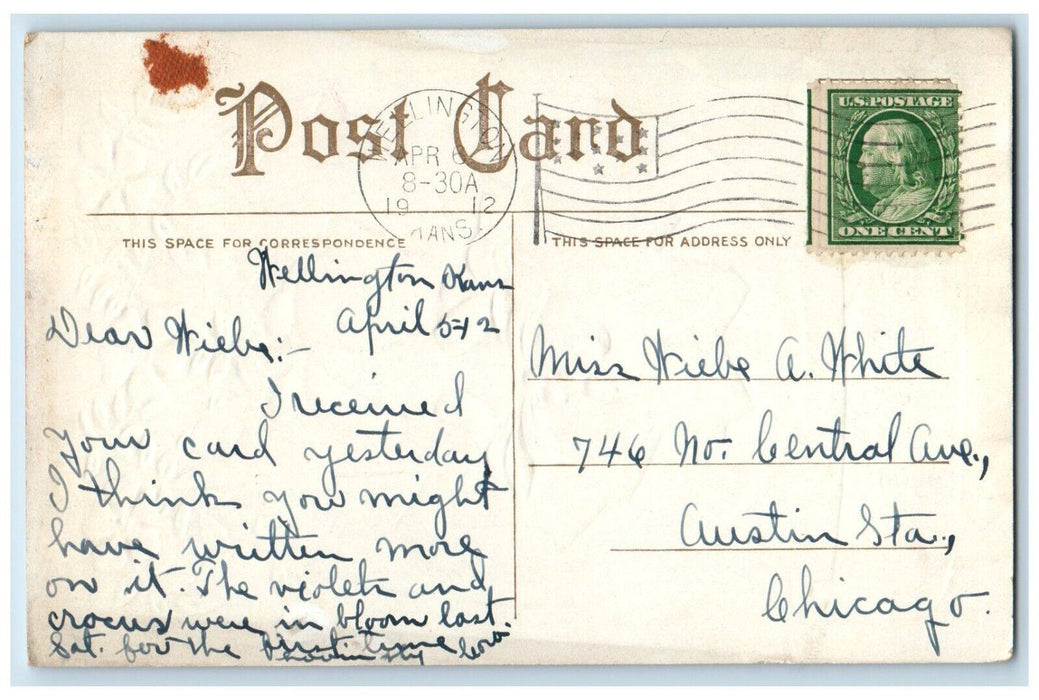 Post Card
WELLINGTON
APR 6
8-30A
1912
KANS.
U.S. POSTAGE
ONE CENT
THIS SPACE FOR CORRESPONDENCE
THIS SPACE FOR ADDRESS ONLY
Wellington Kans
April 5-12
Dear Wiebe:-
I received
your card yesterday
I think you might
have written more
on it. The violets and
crocus were in bloom last
Sat. for the first time
Miss Wiebe A. White
746 No. Central Ave.,
Austin Sta.,
Chicago.